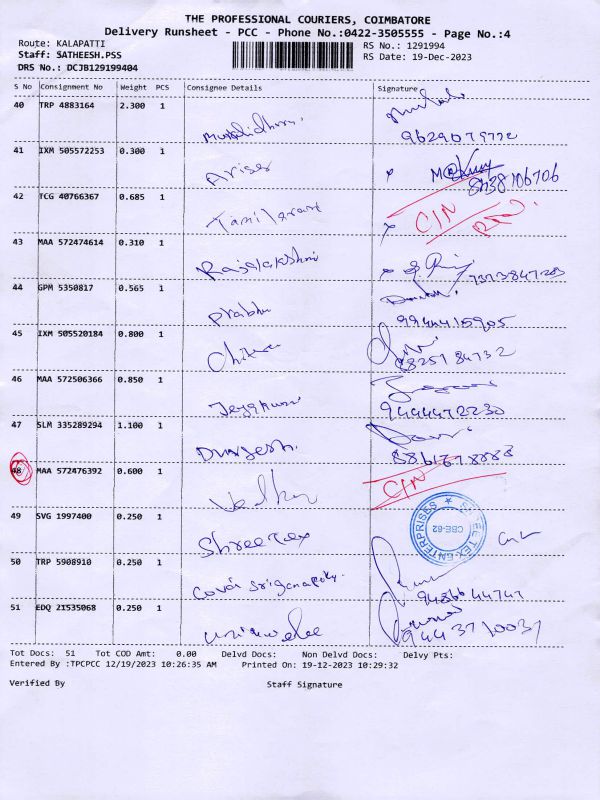 THE PROFESSIONAL COURIERS, COIMBATORE
Delivery Runsheet - PCC - Phone No.:0422-3505555 - Page No.:4
Route: KALAPATTI
Staff: SATHEESH.PSS
DRS No.: DCJB129199404
RS No.: 1291994
RS Date: 19-Dec-2023
S No Consignment No Weight PCS Consignee Details Signature
40 TRP 4883164 2.300 1
9629079772
41 IXM 505572253 0.300 1
8438106706
42 TCG 40766367 0.685 1
CIN
43 MAA 572474614 0.310 1
Rajalakshmi
7373847203
44 GPM 5350817 0.565 1
Prabhu
9944415905
45 IXM 505520184 0.800 1
Chitra
8825184732
46 MAA 572506366 0.850 1
9444472230
47 SLM 335289294 1.100 1
Durgesh.
48 MAA 572476392 0.600 1
CIN
49 SVG 1997400 0.250 1
Shree Tex
SHREE TEX ENTERPRISES
CBE-62
50 TRP 5908910 0.250 1
Covai
9486644747
51 EDQ 21535068 0.250 1
9443710037
Tot Docs: 51 Tot COD Amt: 0.00 Delvd Docs: Non Delvd Docs: Delvy Pts:
Entered By :TPCPCC 12/19/2023 10:26:35 AM Printed On: 19-12-2023 10:29:32
Verified By Staff Signature